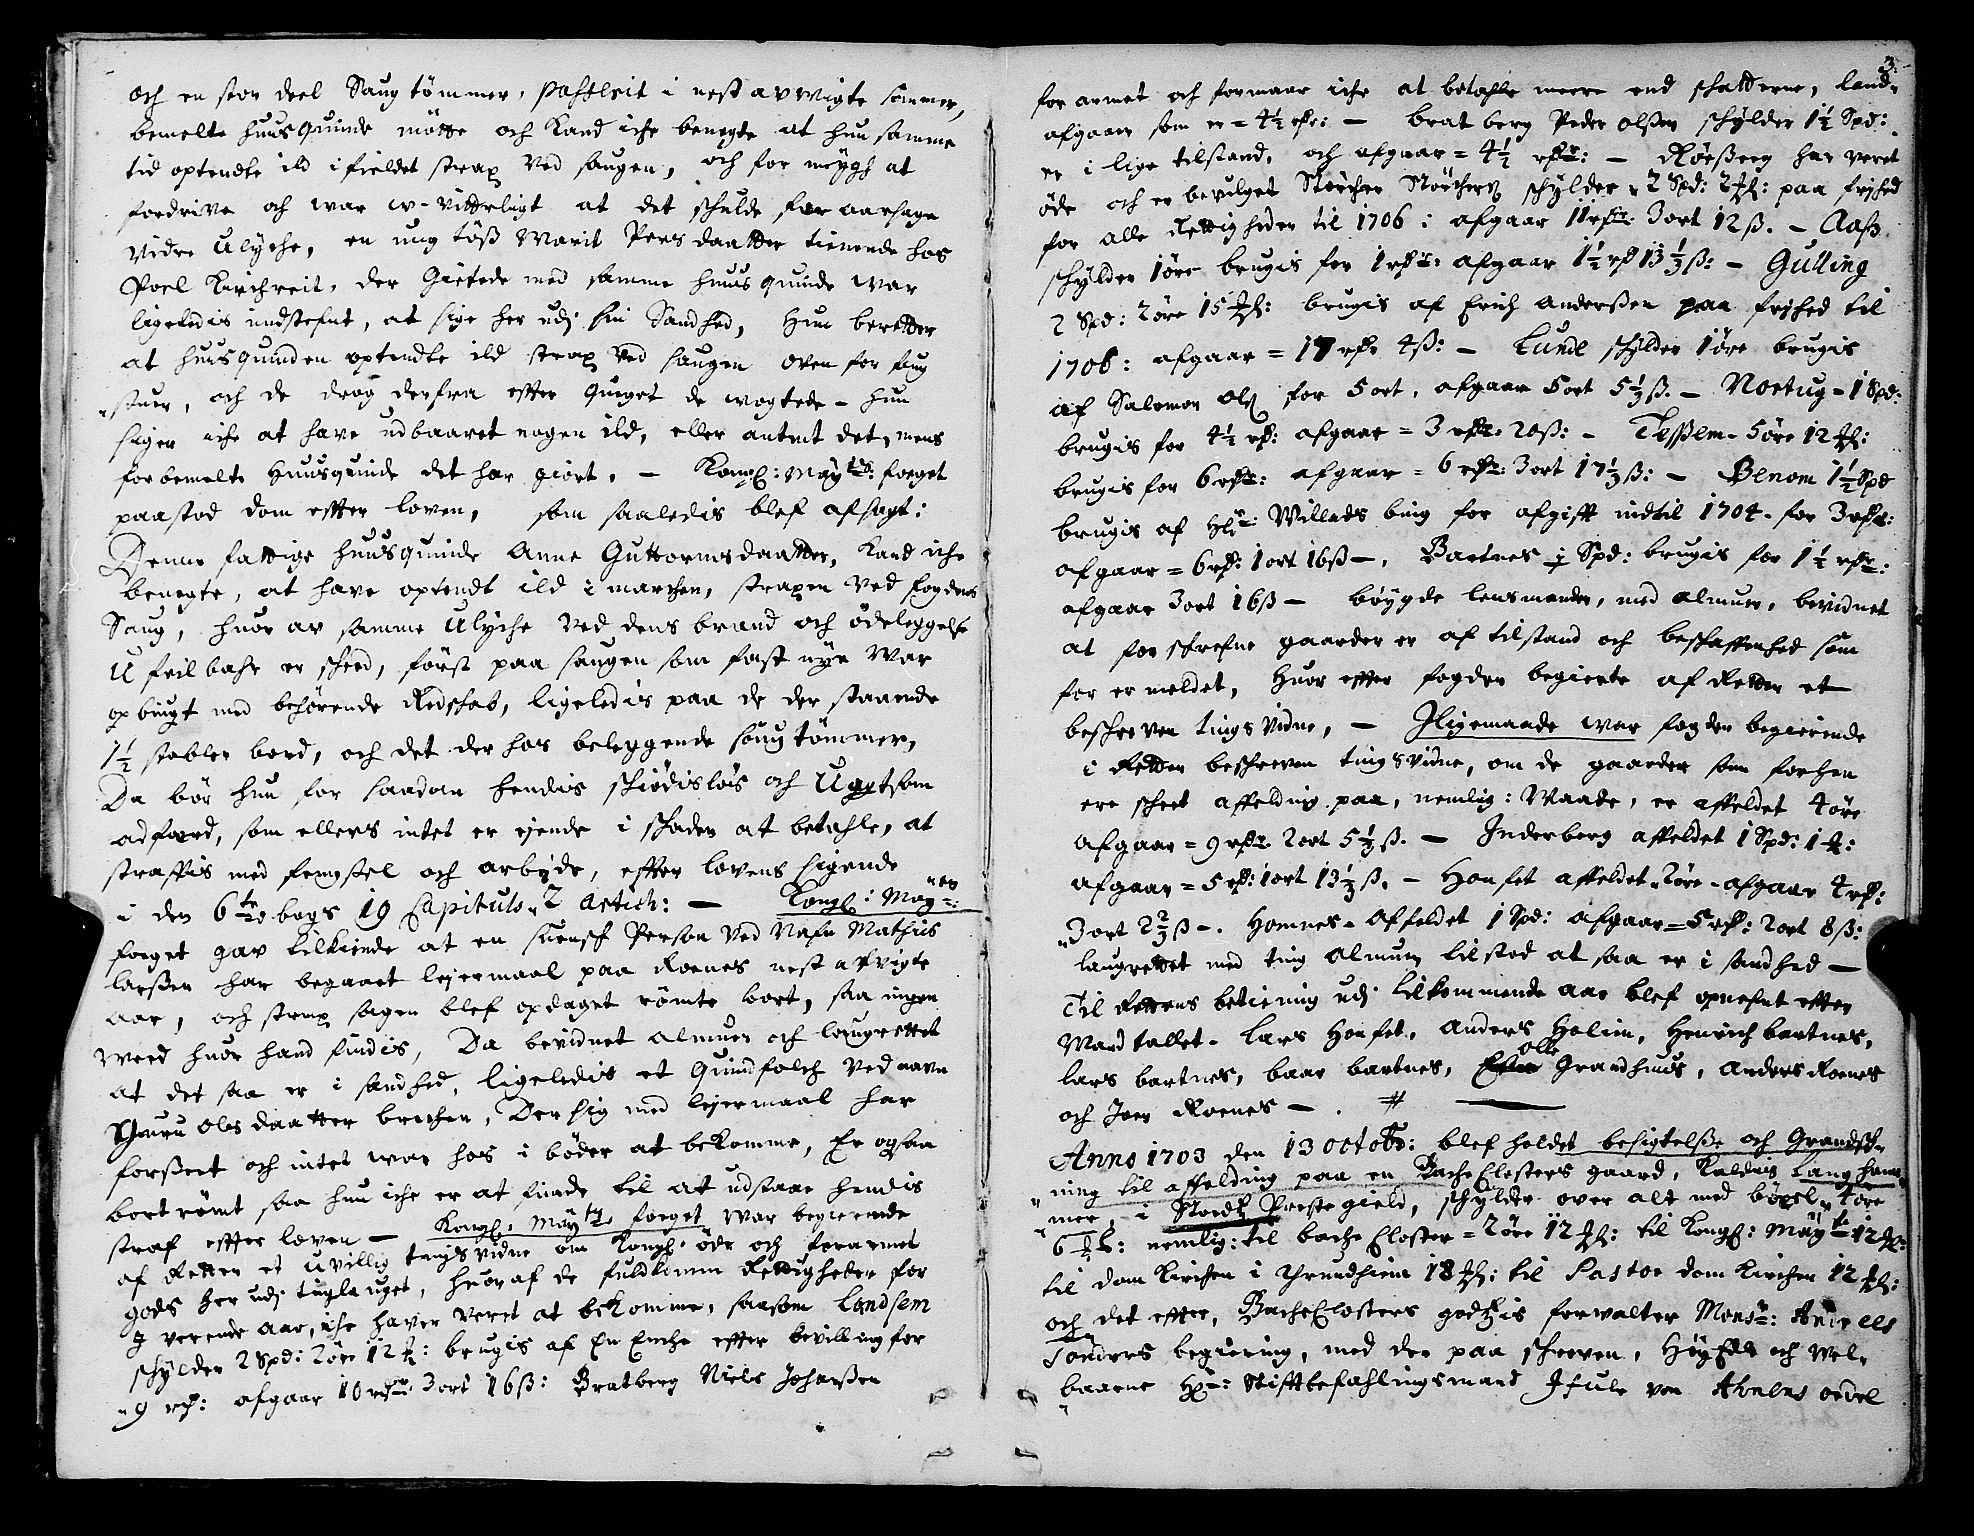 och en stor deel Saug tømmer, pahsleit i nest avvigte sommer,
bemelte huusquinde møtte och kand iche benegte at hun samme
tid optendte ild i fieldet strax ved saugen, och for mygh at
fordrive och war u-vitterligt at det schulde foraarsage
vidre Ulyche, en ung tøs Marit Persdaatter tienende hos
Poel Kirchreit, der Gietede med samme huusquinde war
ligeledis indstefnt, at sige her udj sin Sandhed, Hun beretter
at huusquinden optendte ild strax ved saugen oven for saug
stuen, och de drog derfra efter quæget de wogtede - hun
siger iche at have udbaaret nogen ild, eller antent det, mens
forbemelte Huusquinde det har giort, - Kongl: Mayts: foeget
paastod dom efter loven, som saaledis blef afsagt:
Denne fattige huusquinde Anne Guttormsdaatter, kand iche
benegte, at have optendt ild i marchen, straxen ved fogdens
Saug, huor av samme Ulyche ved dens brand och ødeleggelse
Ufeilbahr er scheed, først paa saugen som fast nye war
opbiugt med behørende Redschab, ligeledis paa de der staaende
1½ stabler bord, och det der hos beleggende saug tømmer,
Da bør hun for saadan hendis schiødisløs och Uagtsom
adferd, som ellers intet er ejende i schaden at betahle, at
straffis med fengsel och arbejde, efter lovens sigende
i den 6te bogs 19 Capituls 2 Artich: - Kongl: Mayts:
foeget gav tilkiende at en suensch Person ved Nafn Mathias
larsen har begaaet lejermaal paa Roenes nest afvigte
aar, och strax sagen blef opdaget rømte bort, saa ingen
weed huor hand findis, Da bevidnet almuen och laugrettet
at det saa er i sandhed, ligeledis et Quindfolch ved navn
Guru Olesdaatter brechen, Der sig med lejermaal har
forseet och intet war hos i bøder at bekomme, Er ogsaa
bortrømt saa hun iche er at finde til at udstaae hendis
straf efter loven - Kongl: Mayts foeget war begierende
af Retten et uvillig tingsvidne om Kongl: øde och forarmet
gods her udj tinglauget, huoraf de fuldkomne Rettigheder for
jverende aar, iche haver veret at bekomme, saasom Landsem
schylder 2 Spd: 2øre 12 : brugis af En Enche efter bevilling for
9 rd: afgaar 10 rdr 3ort 16ß: Bratberg Niels Johansen
3.
forarmet och formaar iche at betahle meere end schatterne, land-
afgaar som er = 4½ rdr: - bratberg Peder Olsen schylder 1½ Spd:
er i lige tilstand, och afgaar = 4½ rdr: - Rørseeg har veret
øde och er bevilget Størcher Størchers: schylder 2 Spd: 2 : paa frjhed
for alle Rettigheder til 1706: afgaar 11 rdr: 3ort 12ß. - Aass
schylder 1øre brugis for 1rdr: afgaar 1½ rd 13⅓ß: - Gulling
2 Spd: 2øre 15 : brugis af Erich Andersen paa frjhed til
1706: afgaar = 17 rdr 4ß: - Lunde schylder 1øre brugis
af Salomon Ols: for 5ort, afgaar 5ort 5⅓ß. - Noetug - 1 Spd:
brugis for 4½ rd: afgaar = 3 rdr: 20ß: - Tessem - 5øre 12 :
brugis for 6rdr: afgaar = 6 rdr: 3ort 17⅓ß: - Benom 1½ Spd
brugis af Hr: Willads bing for afgift indtil 1704. for 3rdr:
afgaar = 6rd: 1ort 16ß -, Bartnes - ½ Spd: brugis for 1½ rdr:
afgaar 3ort 16ß - bøygde lensmanden, med almuen, bevidnet
at forschrefne gaarder er af tilstand och beschaffenhed som
for er meldet, Huor efter fogden begierte af Retten et
beschreven tingsvidne, - Jligemaade war fogden begierende
i Retten beschreven tingsvidne, om de gaarder som forhen
ere scheet affelding paa, nemlig: Waade, er affeldet 4øre
afgaar = 9 rdr. 2ort 5⅓ß. - Inderberg affeldet 1 Spd: 1 :
afgaar = 5 rd: 1ort 13⅓ß. - Honset affeldet 2øre - afgaar 4 rd:
3ort 2⅔ß -. Homnes - affeldet 1 Spd: afgaar = 5 rd: 2ort 8ß:
laugrettet med ting almuen tilstod at saa er i sandhed -
Til Rettens betiening udj tilkommende aar blef opnefnt efter
Mandtallet - Lars Honset, Anders Holim, Henrich bartnes,
lars bartnes, baar bartnes, Olle Grandhuus, Anders Roenes
och Joen Roenes - . # -
Anno 1703 den 13 octobr: blef holdet besigtelse och Grandsch-
ning til affelding paa en Bache Closters gaard, kaldnis Langham-
mer, i Stordz Prestegield, schylder over alt med bøxel 4øre
6 : nemlig: til bache Closter = 2øre 12 : til Kongl: Mayts 12 :
til dom kirchen i Thrundhiem 18 : til Pastor dom kirchen 12 :
och det efter, Bache Closters godzis forwalter Monsr: Anders
Sonders begiering, med der paa schreven, HøyEdle och Wel-
baarne Hr: Stiftbefahlingsmand Jfule von Ahnens ordel